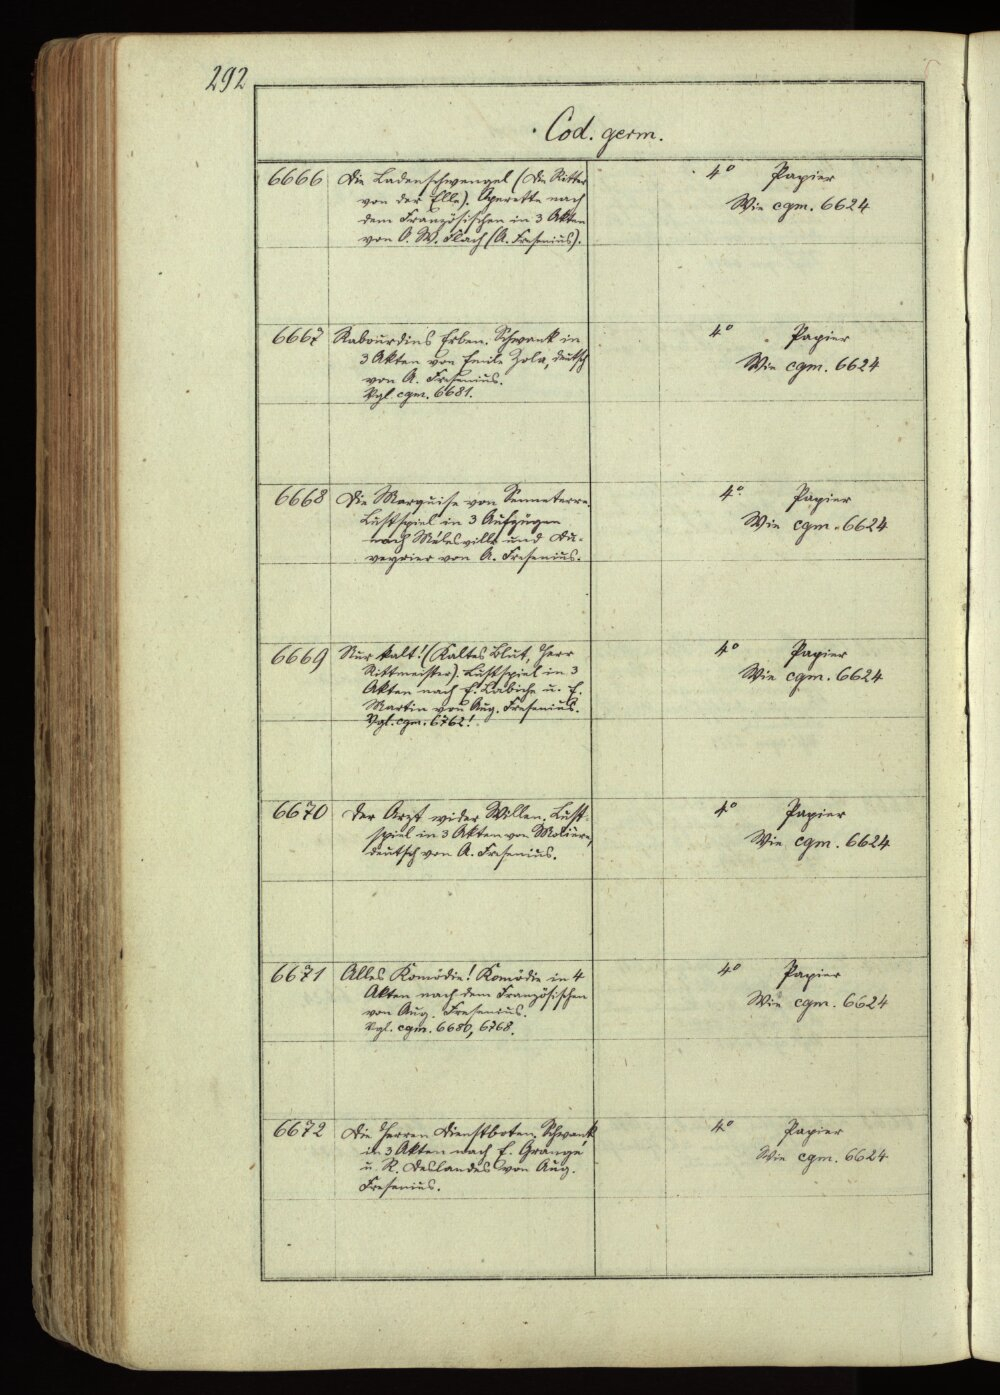 292
Cod. germ.
6666 Die Ladenschwengel (Die Ritter
von der Elle). Operette nach
dem Französischen in 3 Akten
von O. W. Flach (A. Fresenius).
4° Papier
Wie cgm. 6624
6667 Rabourdins Erben. Schwank in
3 Akten von Emile Zola, deutsch
von A. Fresenius.
Vgl. cgm. 6681.
4° Papier
Wie cgm. 6624
6668 Die Marquise von Senneterre.
Lustspiel in 3 Aufzügen
nach Mélesville und Du-
veyrier von A. Fresenius.
4° Papier
Wie cgm. 6624
6669 Nur kalt! (Kaltes Blut, Herr
Rittmeister). Lustspiel in 3
Akten nach E. Labiche u. E.
Martin von Aug. Fresenius.
Vgl. cgm. 6762!
4° Papier
Wie cgm. 6624
6670 Der Arzt wider Willen. Lust-
spiel in 3 Akten von Molière,
deutsch von A. Fresenius.
4° Papier
Wie cgm. 6624
6671 Alles Komödie! Komödie in 4
Akten nach dem Französischen
von Aug. Fresenius.
Vgl. cgm. 6680, 6768.
4° Papier
Wie cgm. 6624
6672 Die Herren Dienstboten. Schwank
in 3 Akten nach E. Grangé
u. R. Deslandes von Aug.
Fresenius.
4° Papier
Wie cgm. 6624